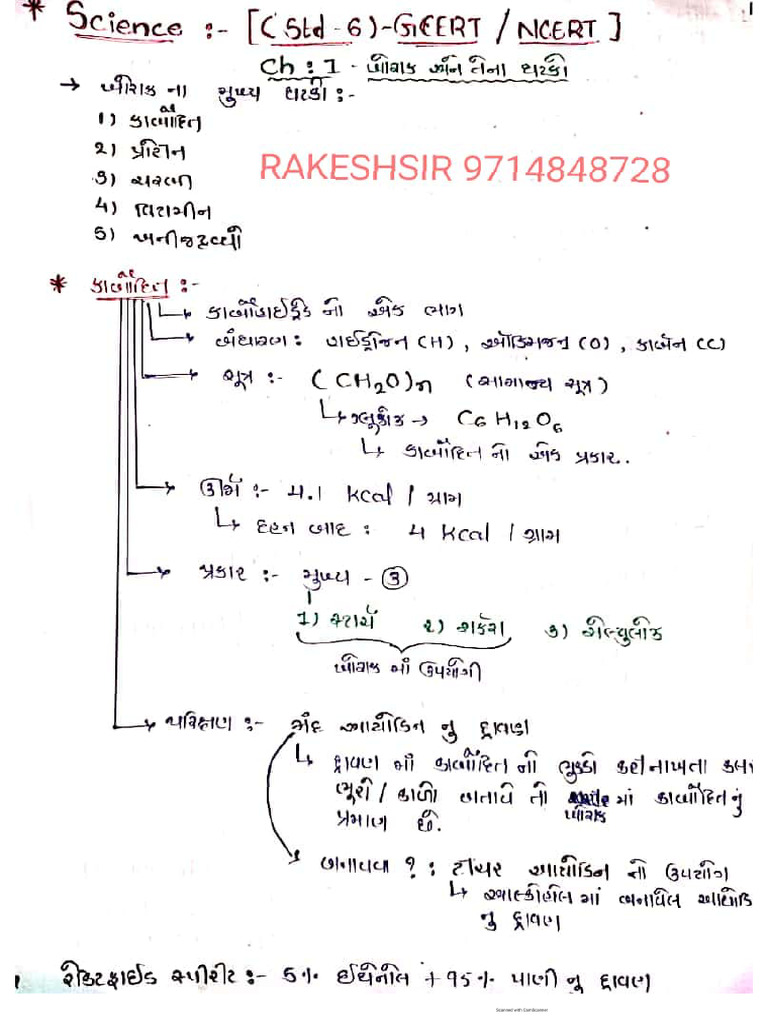 * Science :- [(Std-6)-GCERT / NCERT]
Ch : 1 - ખોરાક અને તેના ઘટકો
→ ખોરાક ના મુખ્ય ઘટકો :-
1) કાર્બોદિત
૨) પ્રોટીન
RAKESHSIR 9714848728
૩) ચરબી
૪) વિટામીન
5) ખનીજદ્રવ્યો
* કાર્બોદિત :-
→ કાર્બોહાઈડ્રેડ નો એક ભાગ
→ બંધારણ : હાઈડ્રોજન (H) , ઓક્સિજન (O) , કાર્બન (C)
→ સૂત્ર :- (CH₂O)n (સામાન્ય સૂત્ર)
↳ ગ્લુકોઝ → C₆H₁₂O₆
↳ કાર્બોદિત નો એક પ્રકાર.
→ ઊર્જા :- 4.1 kcal / ગ્રામ
↳ દહન બાદ : 4 kcal / ગ્રામ
→ પ્રકાર :- મુખ્ય - ③
1) સ્ટાર્ચ ૨) શર્કરા ૩) સેલ્યુલોઝ
ખોરાક માં ઉપયોગી
→ પરિક્ષણ :- મંદ આયોડિન નુ દ્રાવણ
↳ દ્રાવણ માં કાર્બોદિત નો ભુક્કો કરી નાખતા
ભૂરો / કાળો બતાવે તો ખોરાક માં કાર્બોદિત નું
પ્રમાણ છે.
બનાવવા ? : ટીંચર આયોડિન નો ઉપયોગ
↳ આલ્કોહોલ માં બનાવેલ આયોડિ
નુ દ્રાવણ
રેક્ટિફાઈડ સ્પીરીટ :- 5% ઈથેનોલ + 95% પાણી નૂ દ્રાવણ
Scanned with CamScanner